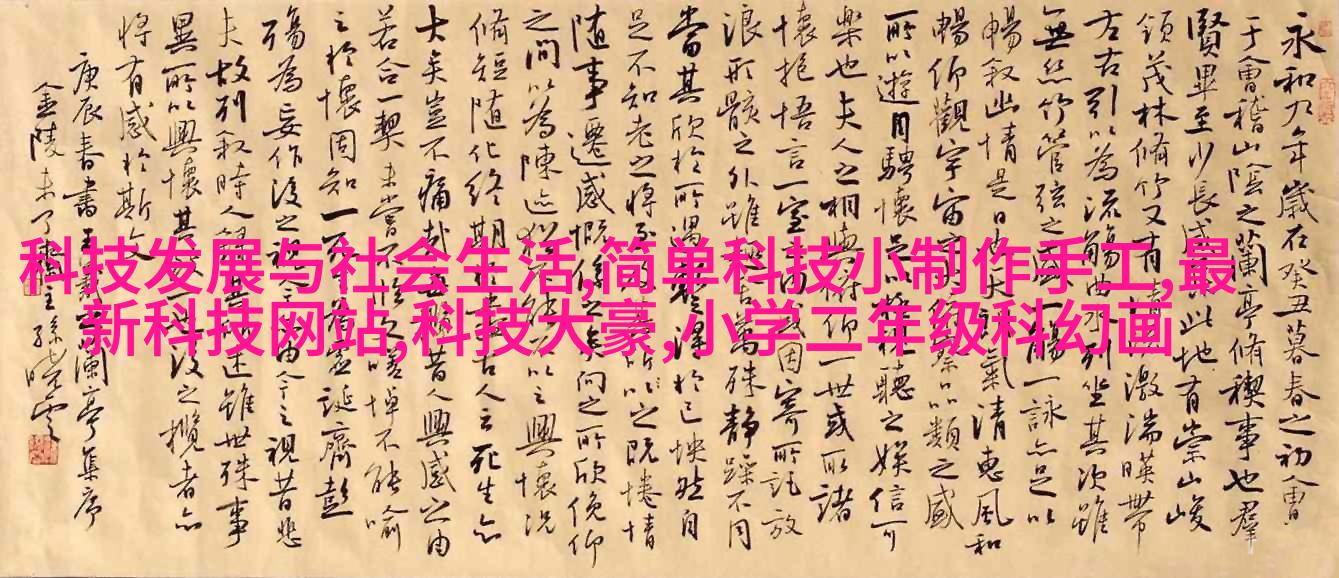 永和九年歲在癸丑暮春之初會
于會稽山陰之蘭亭脩稧事也群
賢畢至少長咸此地有崇山峻
領茂林脩竹又有清激湍暎帶
左右引以為流觴曲水列坐其次雖
無絲竹管弦之盛一觴一詠亦足以
暢敘幽情是日也天朗氣清惠風和
暢仰觀宇宙之察品類之盛
所以遊目騁懷足以極視聽之娛信可
樂也夫人之相與俯仰一世或取諸
懷抱悟言一室之內或因寄所託放
浪形骸之外雖萬殊靜躁不同
當其欣於所遇暫得於己怏然自
足不知老之將至所之既惓情
隨事遷感慨係之矣向之所欣俛仰
之間以為陳迹猶不能以之興懷況
脩短隨化終期古人云死生亦
大矣豈不痛哉昔人興感之由
若合一契未嘗不臨嗟悼不能喻
之於懷固知一死為虛誕齊彭
殤為妄作後之視今由今之視昔悲
夫故列敘時人錄其述雖世殊事
異所以興懷其一也後之攬者亦
將有感於斯文
庚辰春書王羲之蘭亭集序
金陵孫曉雲
科技发展与社会生活,简单科技小制作手工,最
新科技网站,科技大豪,小学二年级科幻画